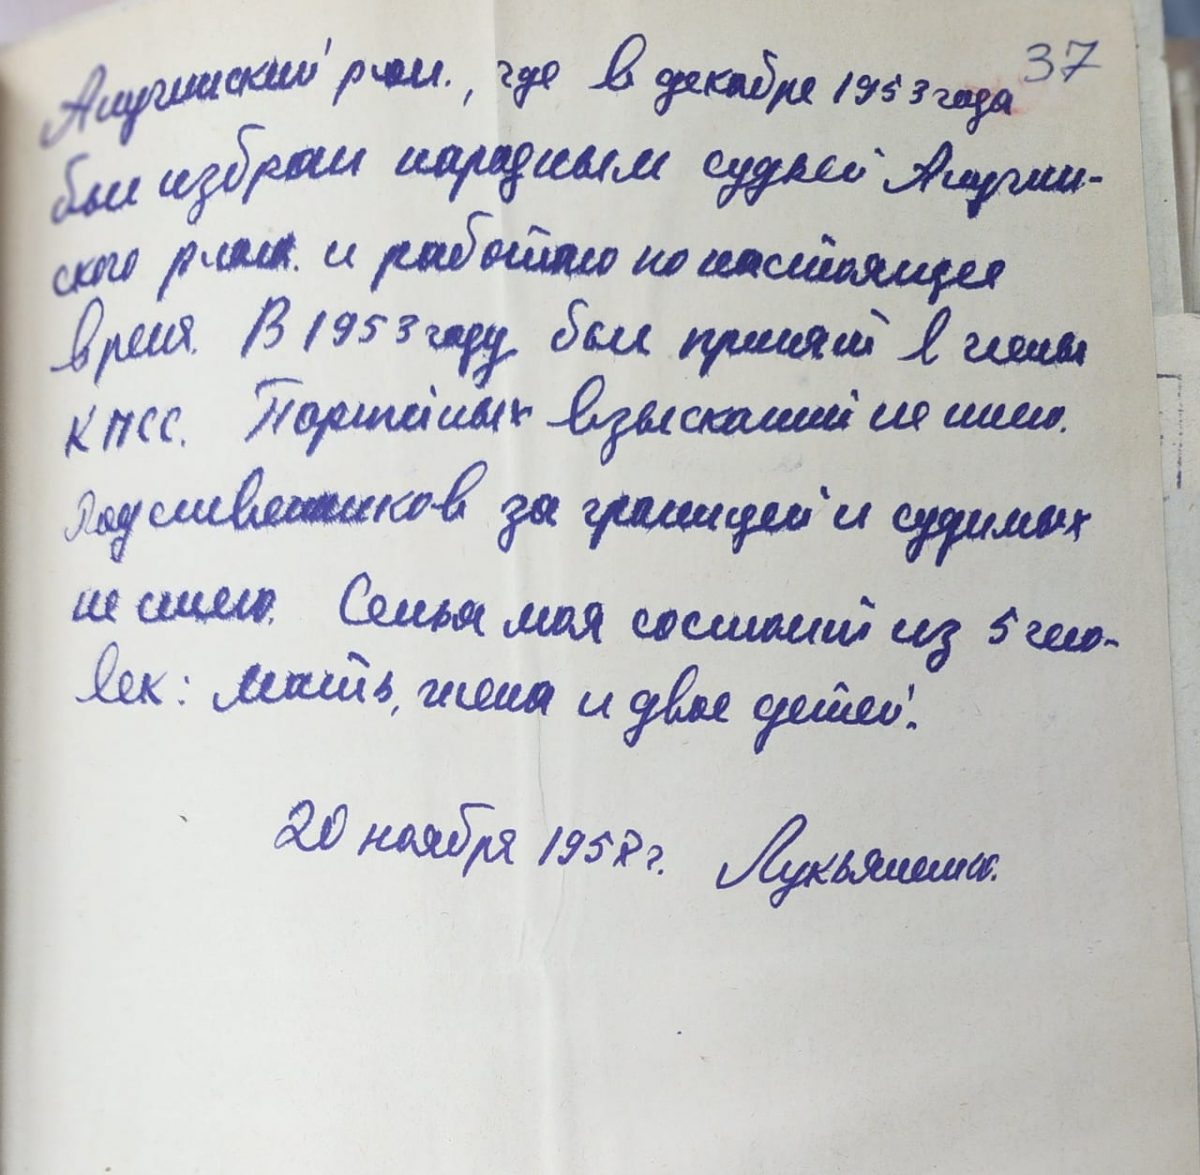 37
Анучинский р-он., где в декабре 1953 года
был избран народным судьей Анучин-
ского р-она. и работаю по настоящее
время. В 1953 году был принят в члены
КПСС. Партийных взысканий не имею.
Родственников за границей и судимых
не имею. Семья моя состоит из 5 чело-
век: мать, жена и двое детей.
20 ноября 1958 г. Лукьяненко.